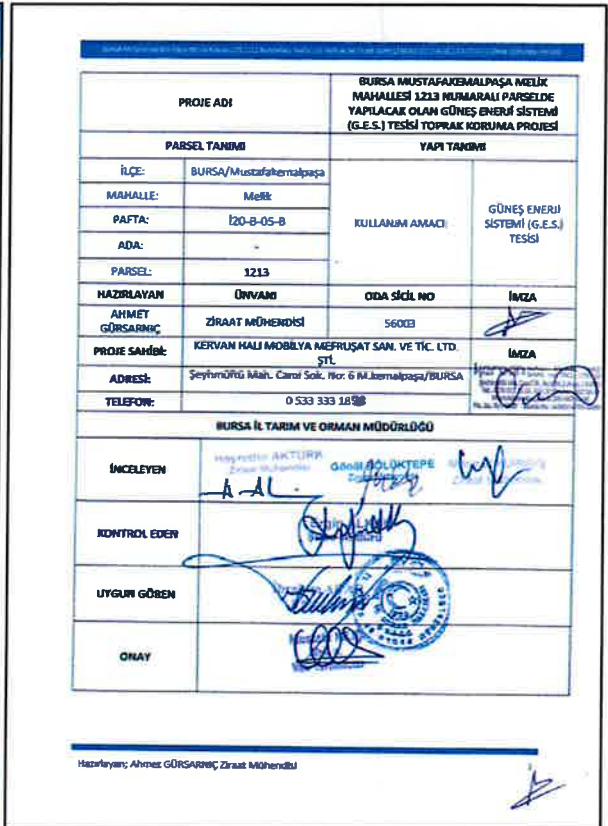 PROJE ADI
BURSA MUSTAFAKEMALPAŞA MELİK
MAHALLESİ 1213 NUMARALI PARSELDE
YAPILACAK OLAN GÜNEŞ ENERJİ SİSTEMİ
(G.E.S.) TESİSİ TOPRAK KORUMA PROJESİ
PARSEL TANIMI
YAPI TANIMI
İLÇE:
BURSA/Mustafakemalpaşa
MAHALLE:
Melik
PAFTA:
İ20-B-05-B
ADA:
-
PARSEL:
1213
KULLANIM AMACI:
GÜNEŞ ENERJİ
SİSTEMİ (G.E.S.)
TESİSİ
HAZIRLAYAN
ÜNVANI
ODA SİCİL NO
İMZA
AHMET
GÜRSARNIÇ
ZİRAAT MÜHENDİSİ
56003
PROJE SAHİBİ:
KERVAN HALI MOBİLYA MEFRUŞAT SAN. VE TİC. LTD.
ŞTİ.
İMZA
ADRESİ:
Şeyhmüftü Mah. Cami Sok. No: 6 M.kemalpaşa/BURSA
TELEFON:
0 533 333 18
BURSA İL TARIM VE ORMAN MÜDÜRLÜĞÜ
İNCELEYEN
Hayrettin AKTÜRK
Ziraat Mühendisi
Gönül BÖLÜKTEPE
KONTROL EDEN
UYGUN GÖREN
ONAY
Hazırlayan; Ahmet GÜRSARNIÇ Ziraat Mühendisi